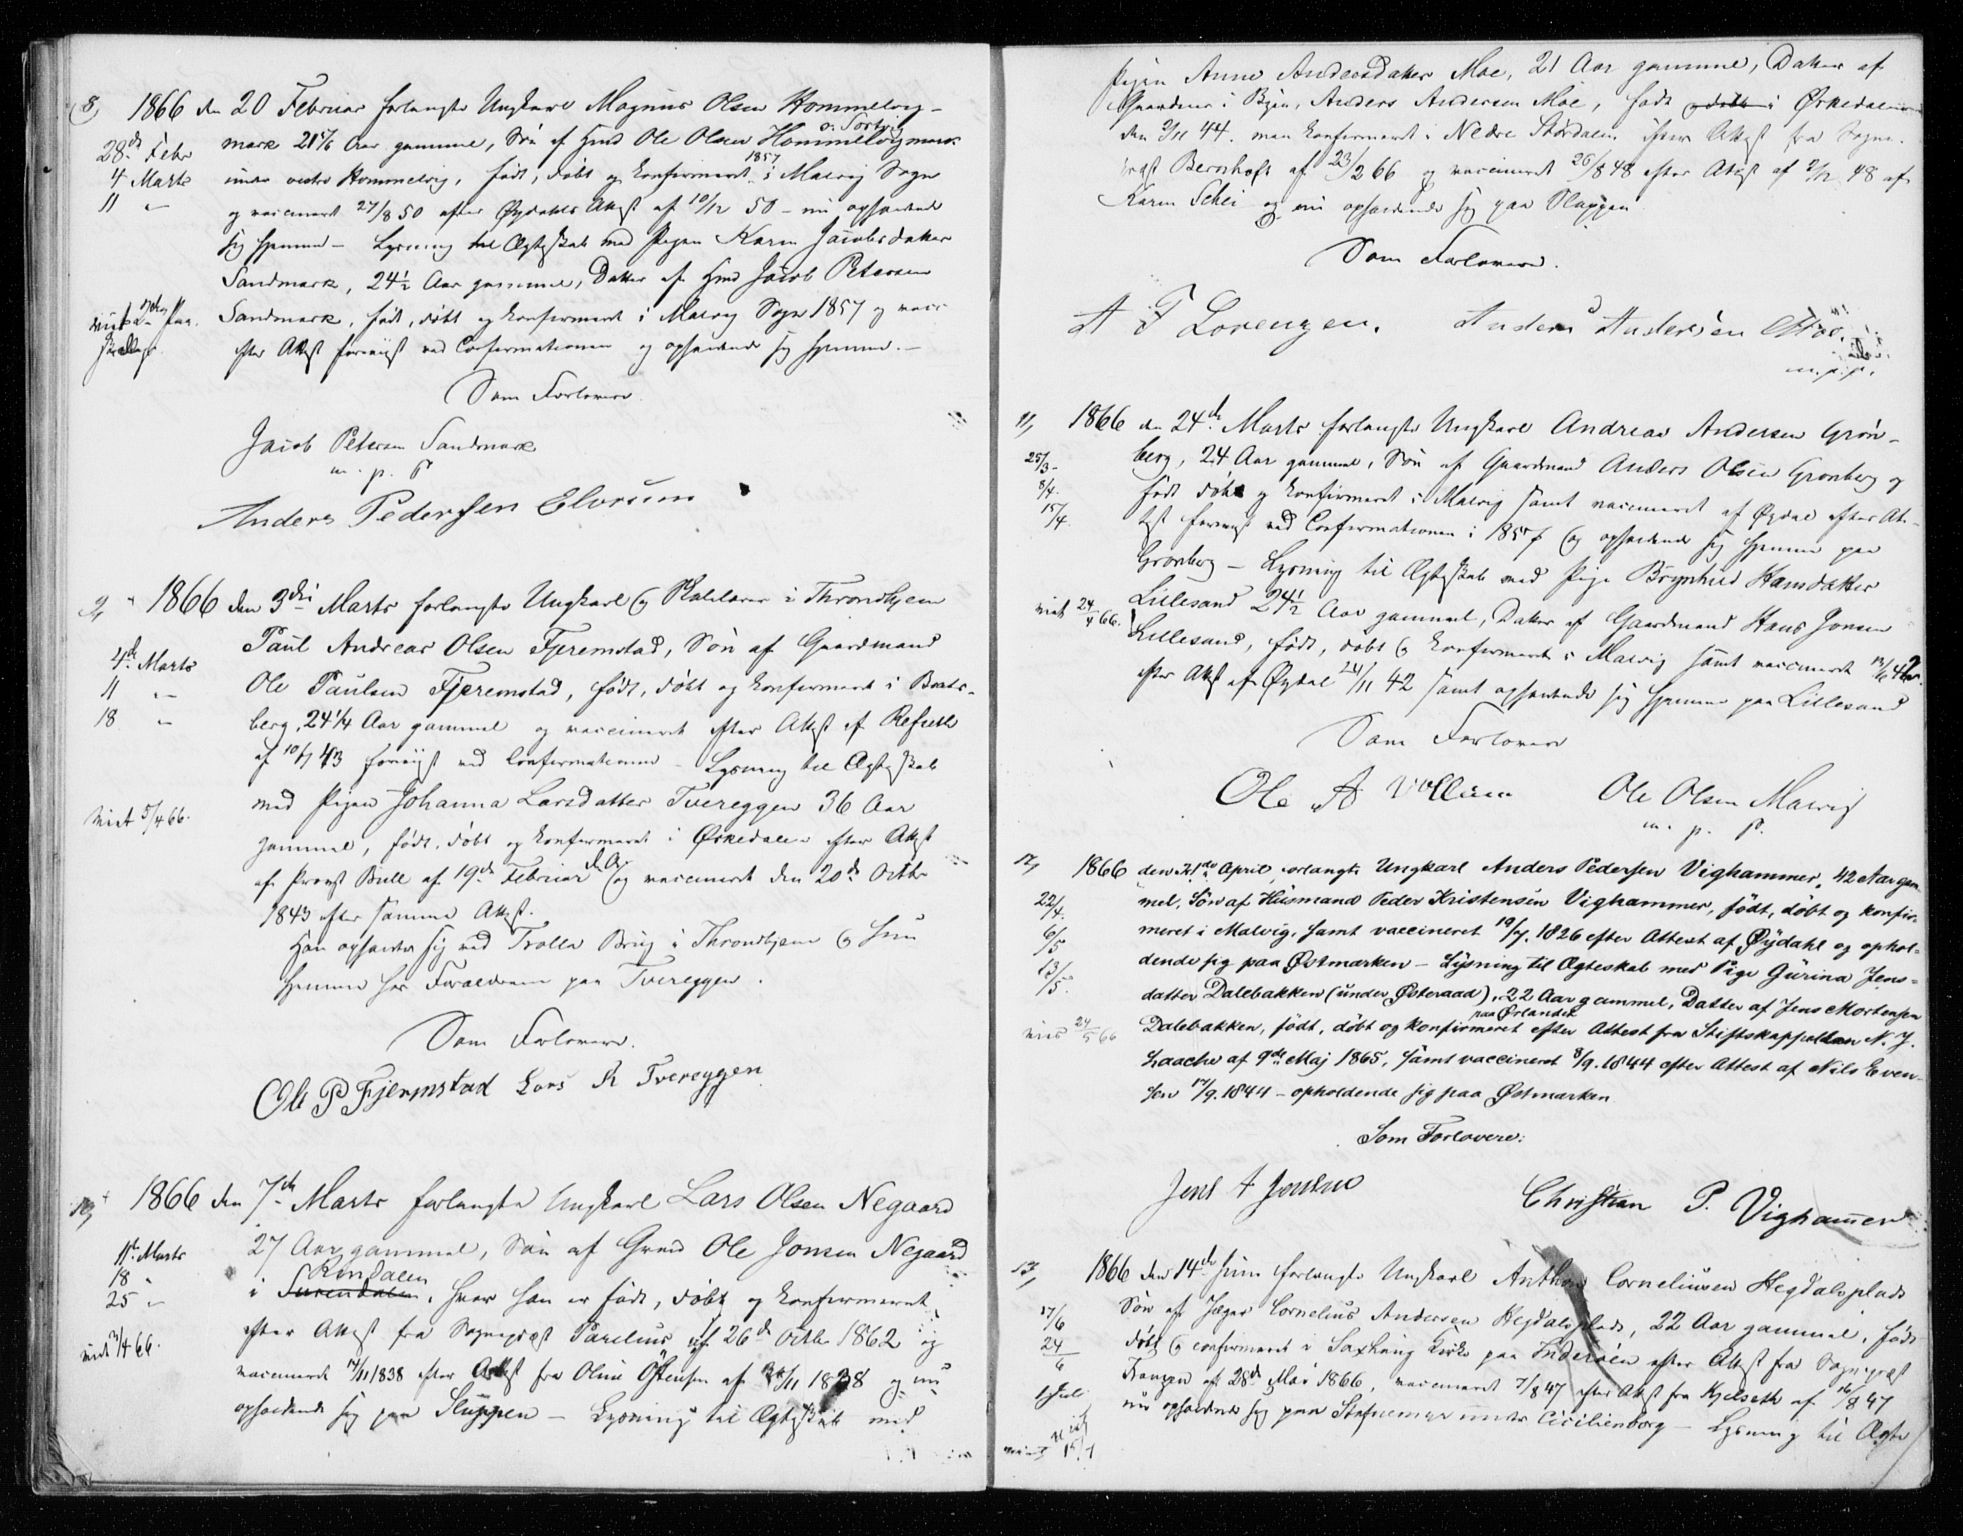 8, 1866 den 20 Februar forlangte Ungkarl Magnus Olsen Hommelvig-
28de Febr mark 21 Aar gammel, Søn af Hmd Ole Olsen Hommelvigmark
4 Marts under vestre Hommelvig, født, døbt og konfirmeret 1857 i Malvig Sogn
11 — og vaccineret 27/8 50 efter Øydahls Attest af 10/12 50 – nu opholdende
sig hjemme – Lysning til Ægteskab med Pigen Karen Jacobsdatter
Sandmark, 24½ Aar gammel, Datter af Hmd Jacob Petersen
Sandmark, født, døbt og konfirmeret i Malvig Sogn 1857 og vacc
efter Attest forevist ved Confirmationen og opholdende sig hjemme.—
Som Forlovere
Jacob Petersen Sandmark
m. p. P
Anders Pedersen Elvrum
9, 1866 den 3die Marts forlangte Ungkarl og i Throndhjem
4de Marts Paul Andreas Olsen Fjeremstad, Søn af Gaardmand
11 — Ole Paulsen Fjeremstad, født, døbt og konfirmeret i Brats-
18 — berg, 24¼ Aar gammel og vaccineret efter Attest af
af 10/7 43 forevist ved Confirmationen – Lysning til Ægteskab
viet 5/4 66. med Pigen Johanna Larsdatter Tvereggen 36 Aar
gammel, født, døbt og konfirmeret i Ørkedalen efter Attest
af Provst Bull af 19de Februar d.A. og vaccineret den 20de Octbr
1843 efter samme Attest.
Han opholder sig ved Trolla Brug i Throndhjem og hun
hjemme hos Forældrene paa Tvereggen.
Som Forlovere.
Ole P Fjermstad Lars R Tvereggen
10, 1866 den 7de Marts forlangte Ungkarl Lars Olsen Negaard
11te Marts 27 Aar gammel, Søn af Grmd Ole Jonsen Negaard
18 - i Surendalen Rindalen, hvor han er født, døbt og konfirmeret
25 — efter Attest fra Sognepræst Parelius af 26de Octbr 1862 og
viet /4 66. vaccineret /11 1838 efter Attest fra Oline Østensen af /11 1838 og nu
opholdende sig paa Sluppen – Lysning til Ægteskab med
Pigen Anne Andersdatter Moe, 21 Aar gammel, Datter af
Gaardmand i Byen, Anders Andersen Moe, født i Ørkedalen
den 2/11 44. men konfirmeret i Nedre Stördalen, efter Attest fra Sogne-
præst Bernhoft af 23/2 66 og vaccineret 26/8 48 efter Attest af 2/12 48 af
Karen Schei og nu opholdende sig paa Sluppen
Som Forlovere.
A F Lorenzen. Anders Andersen Moe.
m.p.p.
11, 1866 den 24de Marts forlangte Ungkarl Andreas Andersen Grøn-
25/3 – berg, 24 Aar gammel, Søn af Gaardmand Anders Olsen Grønberg og
8/4. født døbt og konfirmeret i Malvig samt vaccineret af Øydal efter At-
15/4. test forevist ved Confirmationen i 1857 og opholdende sig hjemme paa
Grønberg – Lysning til Ægteskab med Pige Brynhild Hansdatter
viet 24/4 66. Lillesand 24½ Aar gammel, Datter af Gaardmand Hans Jonsen
Lillesand, født, døbt og konfirmeret i Malvig samt vaccineret
efter Attest af Øydal 24/11 42 samt opholdende sig hjemme paa Lillesand
Som Forlovere
Ole A Vollum Ole Olsen Malvig
m. p. P.
12, 1866 den 21de April forlangte Ungkarl Anders Pedersen Vighammer, 42 Aar gam-
22/4. mel, Søn af Husmand Peder Kristensen Vighammer, født, døbt og konfir-
6/5 meret i Malvig, samt vaccineret 19/7. 1826 efter Attest af Øydahl og ophol-
13/5. dende sig paa Østmarken – Lysning til Ægteskab med Pige Gurina Jens-
datter Dalebakken (under Østeraad), 22 Aar gammel, Datter af Jens Mortensen
viet 24/5 66 Dalebakken, født, døbt og konfirmeret paa Ørlandet efter Attest fra Stiftskappellan N. J.
Laache af 9de Maj 1865, samt vaccineret 8/9. 1844 efter Attest af Nils Even-
sen 17/9. 1844 – opholdende sig paa Østmarken
Som Forlovere:
Jens A Jensen Christian P. Vighammer
13, 1866 den 14de Juni forlangte Ungkarl Anthon Corneliusen Hegdalsplads
17/6 Søn af Jæger Cornelius Andersen Hegdalsplads, 22 Aar gammel, født
24/6 døbt og confirmeret i Saxhaug Kirke paa Inderøen efter Attest fra Sognepræst
1 Juli af 28de Mai 1866, vaccineret 7/8 47 efter Attest fra Kjelseth af 16/8 47
nu opholdende sig paa under Cicilienborg – Lysning til Ægte
viet 15/7